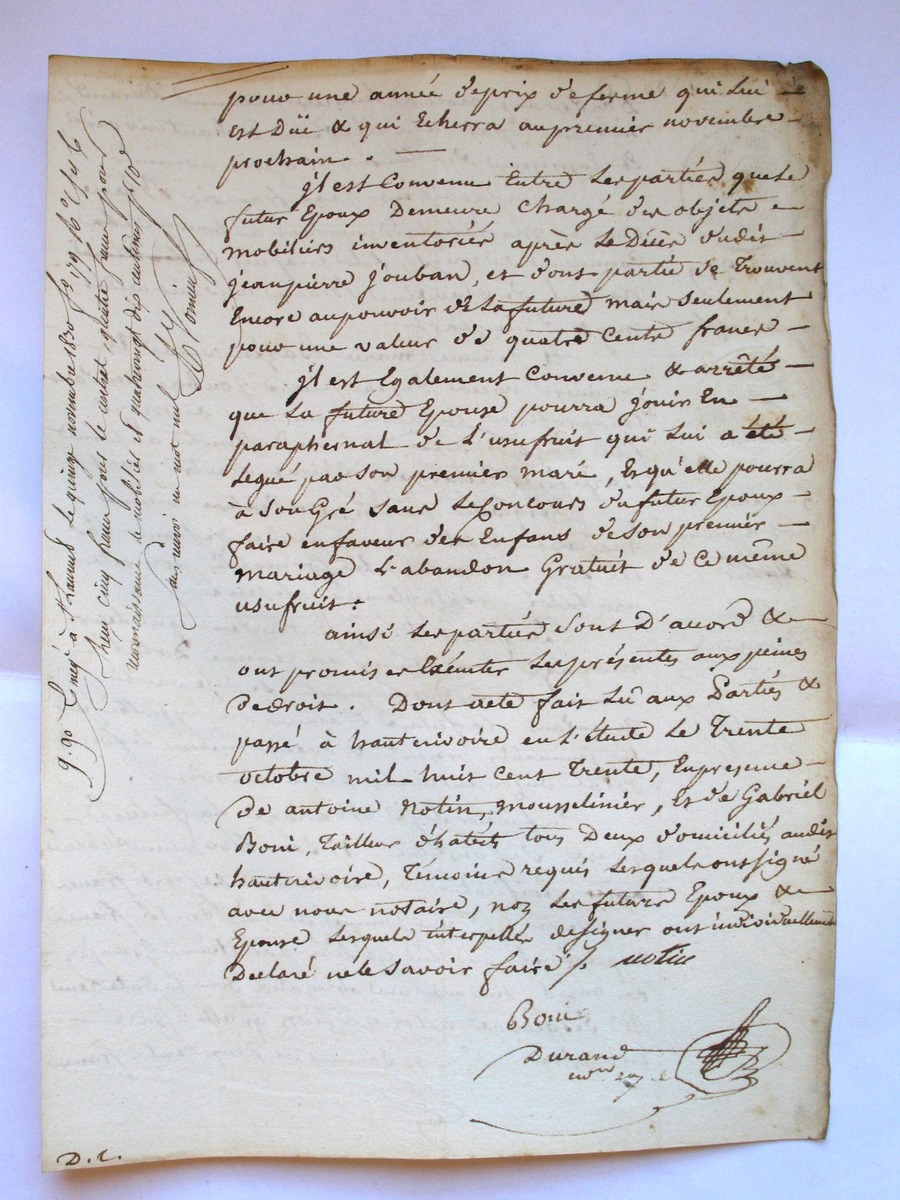 pour une année de prix de ferme qui lui
est Düe & qui Echerra au premier novembre
prochain.
j'il est Convenu Entre les parties que le
futur Epoux Demeure Chargé des objets
mobiliers inventoriés après le Décès dudit
jean pierre jouban, et dont partie se Trouvent
Encore au pouvoir de la future mais seulement
pour une valeur de quatre Cents francs
j'il est Egalement Convenu & arrêté
que la future Epouse pourra jouir En
paraphernal de l'usufruit qui lui a été
Legué par son premier mari, Et qu'elle pourra
à son Gré sans le Concours du futur Epoux
faire en faveur des Enfans de son premier
mariage l'abandon Gratuit de Ce même
usufruit.
ainsi les parties sont D'accord &
ont promis Exécuter les présentes aux peines
de droit. Dont acte fait Lu aux Parties &
passé à hauterivoire en l'étude Le Trente
octobre mil huit Cent Trente, En presence
De antoine Notin, mousselinier, Et de Gabriel
Boni, Tailleur d'habits tous Deux domiciliés audit
hauterivoire, Témoins requis lesquels ont signé
avec nous notaire, non les futurs Epoux &
Epouse lesquels interpellés de signer ont individuellement
Declaré ne le savoir faire /. notin
Boni
Durand
D. C.
9.90 Enregé à le quinze novembre 1830 fo 179
cinq francs pour le contrat quatre francs pour
reconnaissance de mobilier et quatre vingt dix centimes pr 10e
sans renvoi ni mot nul